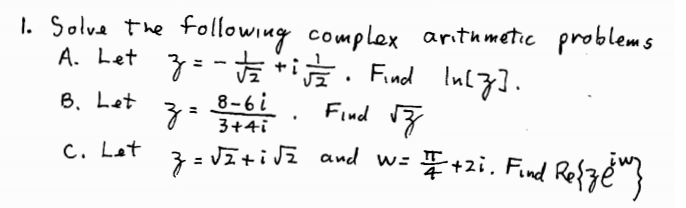 1. Solve the following complex aritnmetic problems
A. Let z = - 1/√2 + i 1/√2 . Find ln[z].
B. Let z = 8-6i / 3+4i . Find √z
C. Let z = √2 + i √2 and w = π/4 + 2i. Find Re{z e^{iw}}